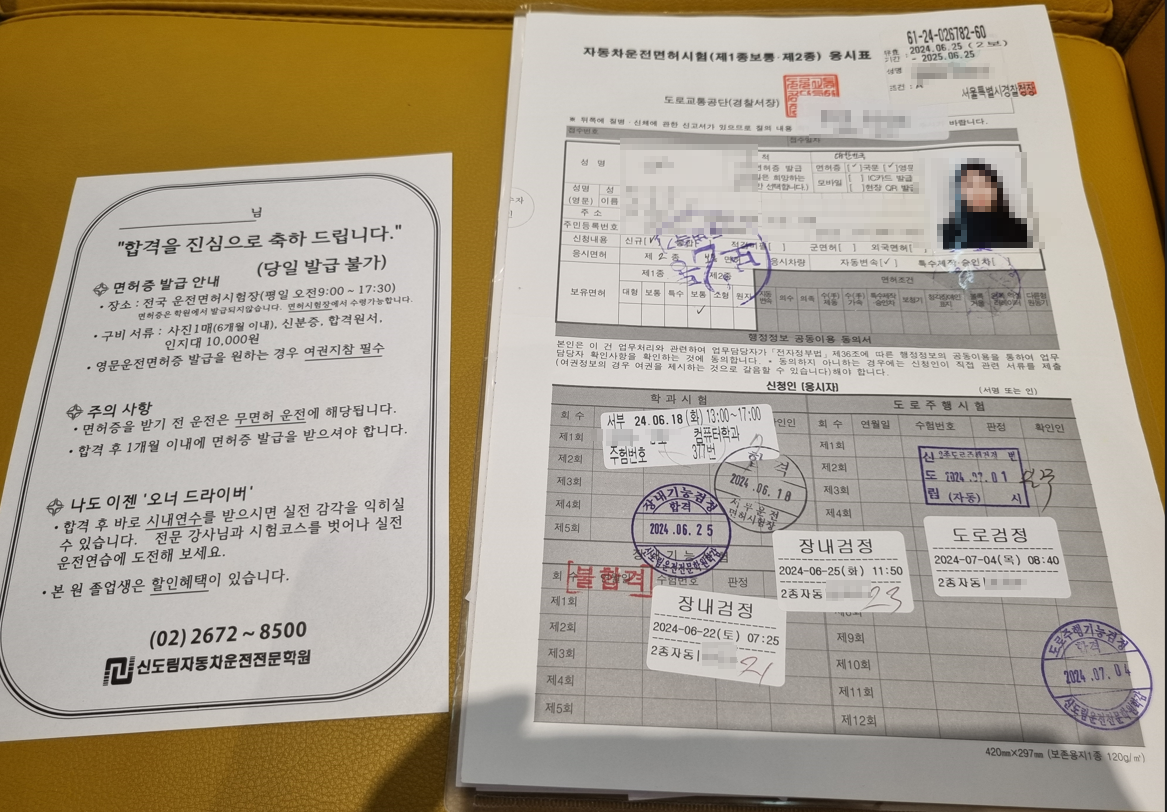 님
"합격을 진심으로 축하 드립니다."
(당일 발급 불가)
면허증 발급 안내
• 장소 : 전국 운전면허시험장(평일 오전9:00 ~ 17:30)
면허증은 학원에서 발급되지않습니다. 면허시험장에서 수령가능합니다.
• 구비 서류 : 사진1매(6개월 이내), 신분증, 합격원서,
인지대 10,000원
• 영문운전면허증 발급을 원하는 경우 여권지참 필수
주의 사항
• 면허증을 받기 전 운전은 무면허 운전에 해당됩니다.
• 합격 후 1개월 이내에 면허증 발급을 받으셔야 합니다.
나도 이젠 '오너 드라이버'
• 합격 후 바로 시내연수를 받으시면 실전 감각을 익히실
수 있습니다. 전문 강사님과 시험코스를 벗어나 실전
운전연습에 도전해 보세요.
• 본 원 졸업생은 할인혜택이 있습니다.
(02) 2672 ~ 8500
신도림자동차운전전문학원
61-24-026782-60
2024.06.25 (2보)
기간 - 2025.06.25
성명
조건 : A
서울특별시경찰청장
자동차운전면허시험(제1종보통·제2종) 응시표
도로교통공단(경찰서장)
※ 뒤쪽에 질병·신체에 관한 신고서가 있으므로 질의 내용 바랍니다.
접수번호 접수일자
성 명 적 대한민국
면허증 발급 면허증 [ ✓ ] 국문 [ ✓ ] 영문
모바일 [ ] IC카드 발급
[ ] 현장 QR 발급
성명 성
(영문) 이름
주 소
주민등록번호
신청내용 신규[ 군면허[ ] 외국면허[ ]
응시면허 제 2 종 응시차량 자동변속[✓] 특수제작·승인차[ ]
보유면허 제1종 제2종 면허조건
대형 보통 특수 보통 소형 원자
✓
행정정보 공동이용 동의서
본인은 이 건 업무처리와 관련하여 업무담당자가 「전자정부법」 제36조에 따른 행정정보의 공동이용을 통하여 업무
담당자 확인사항을 확인하는 것에 동의합니다. * 동의하지 아니하는 경우에는 신청인이 직접 관련 서류를 제출
(여권정보의 경우 여권을 제시하는 것으로 갈음할 수 있습니다)해야 합니다.
신청인 (응시자) (서명 또는 인)
학 과 시 험
회 수
제1회
제2회
제3회
제4회
제5회
서부 24.06.18(화) 13:00~17:00
컴퓨터학과
수험번호 377번
합 격
2024.06.18
서부운전
면허시험장
장내기능검정
합격
2024.06.25
신도림운전전문학원장
도 로 주 행 시 험
회 수 연월일 수험번호 판정 확인인
제1회
제2회
제3회
제4회
신
도
림
(자동) 시
장내검정
2024-06-25(화) 11:50
2종자동
23
도로검정
2024-07-04(목) 08:40
2종자동
불합격
회 수 수험번호 판정
제1회
제2회
제3회
제4회
제5회
장내검정
2024-06-22(토) 07:25
2종자동
21
제9회
제10회
제11회
제12회
도로주행기능검정
합격
2024.07.04
신도림운전전문학원장
420㎜×297㎜ (보존용지1종 120g/㎡)